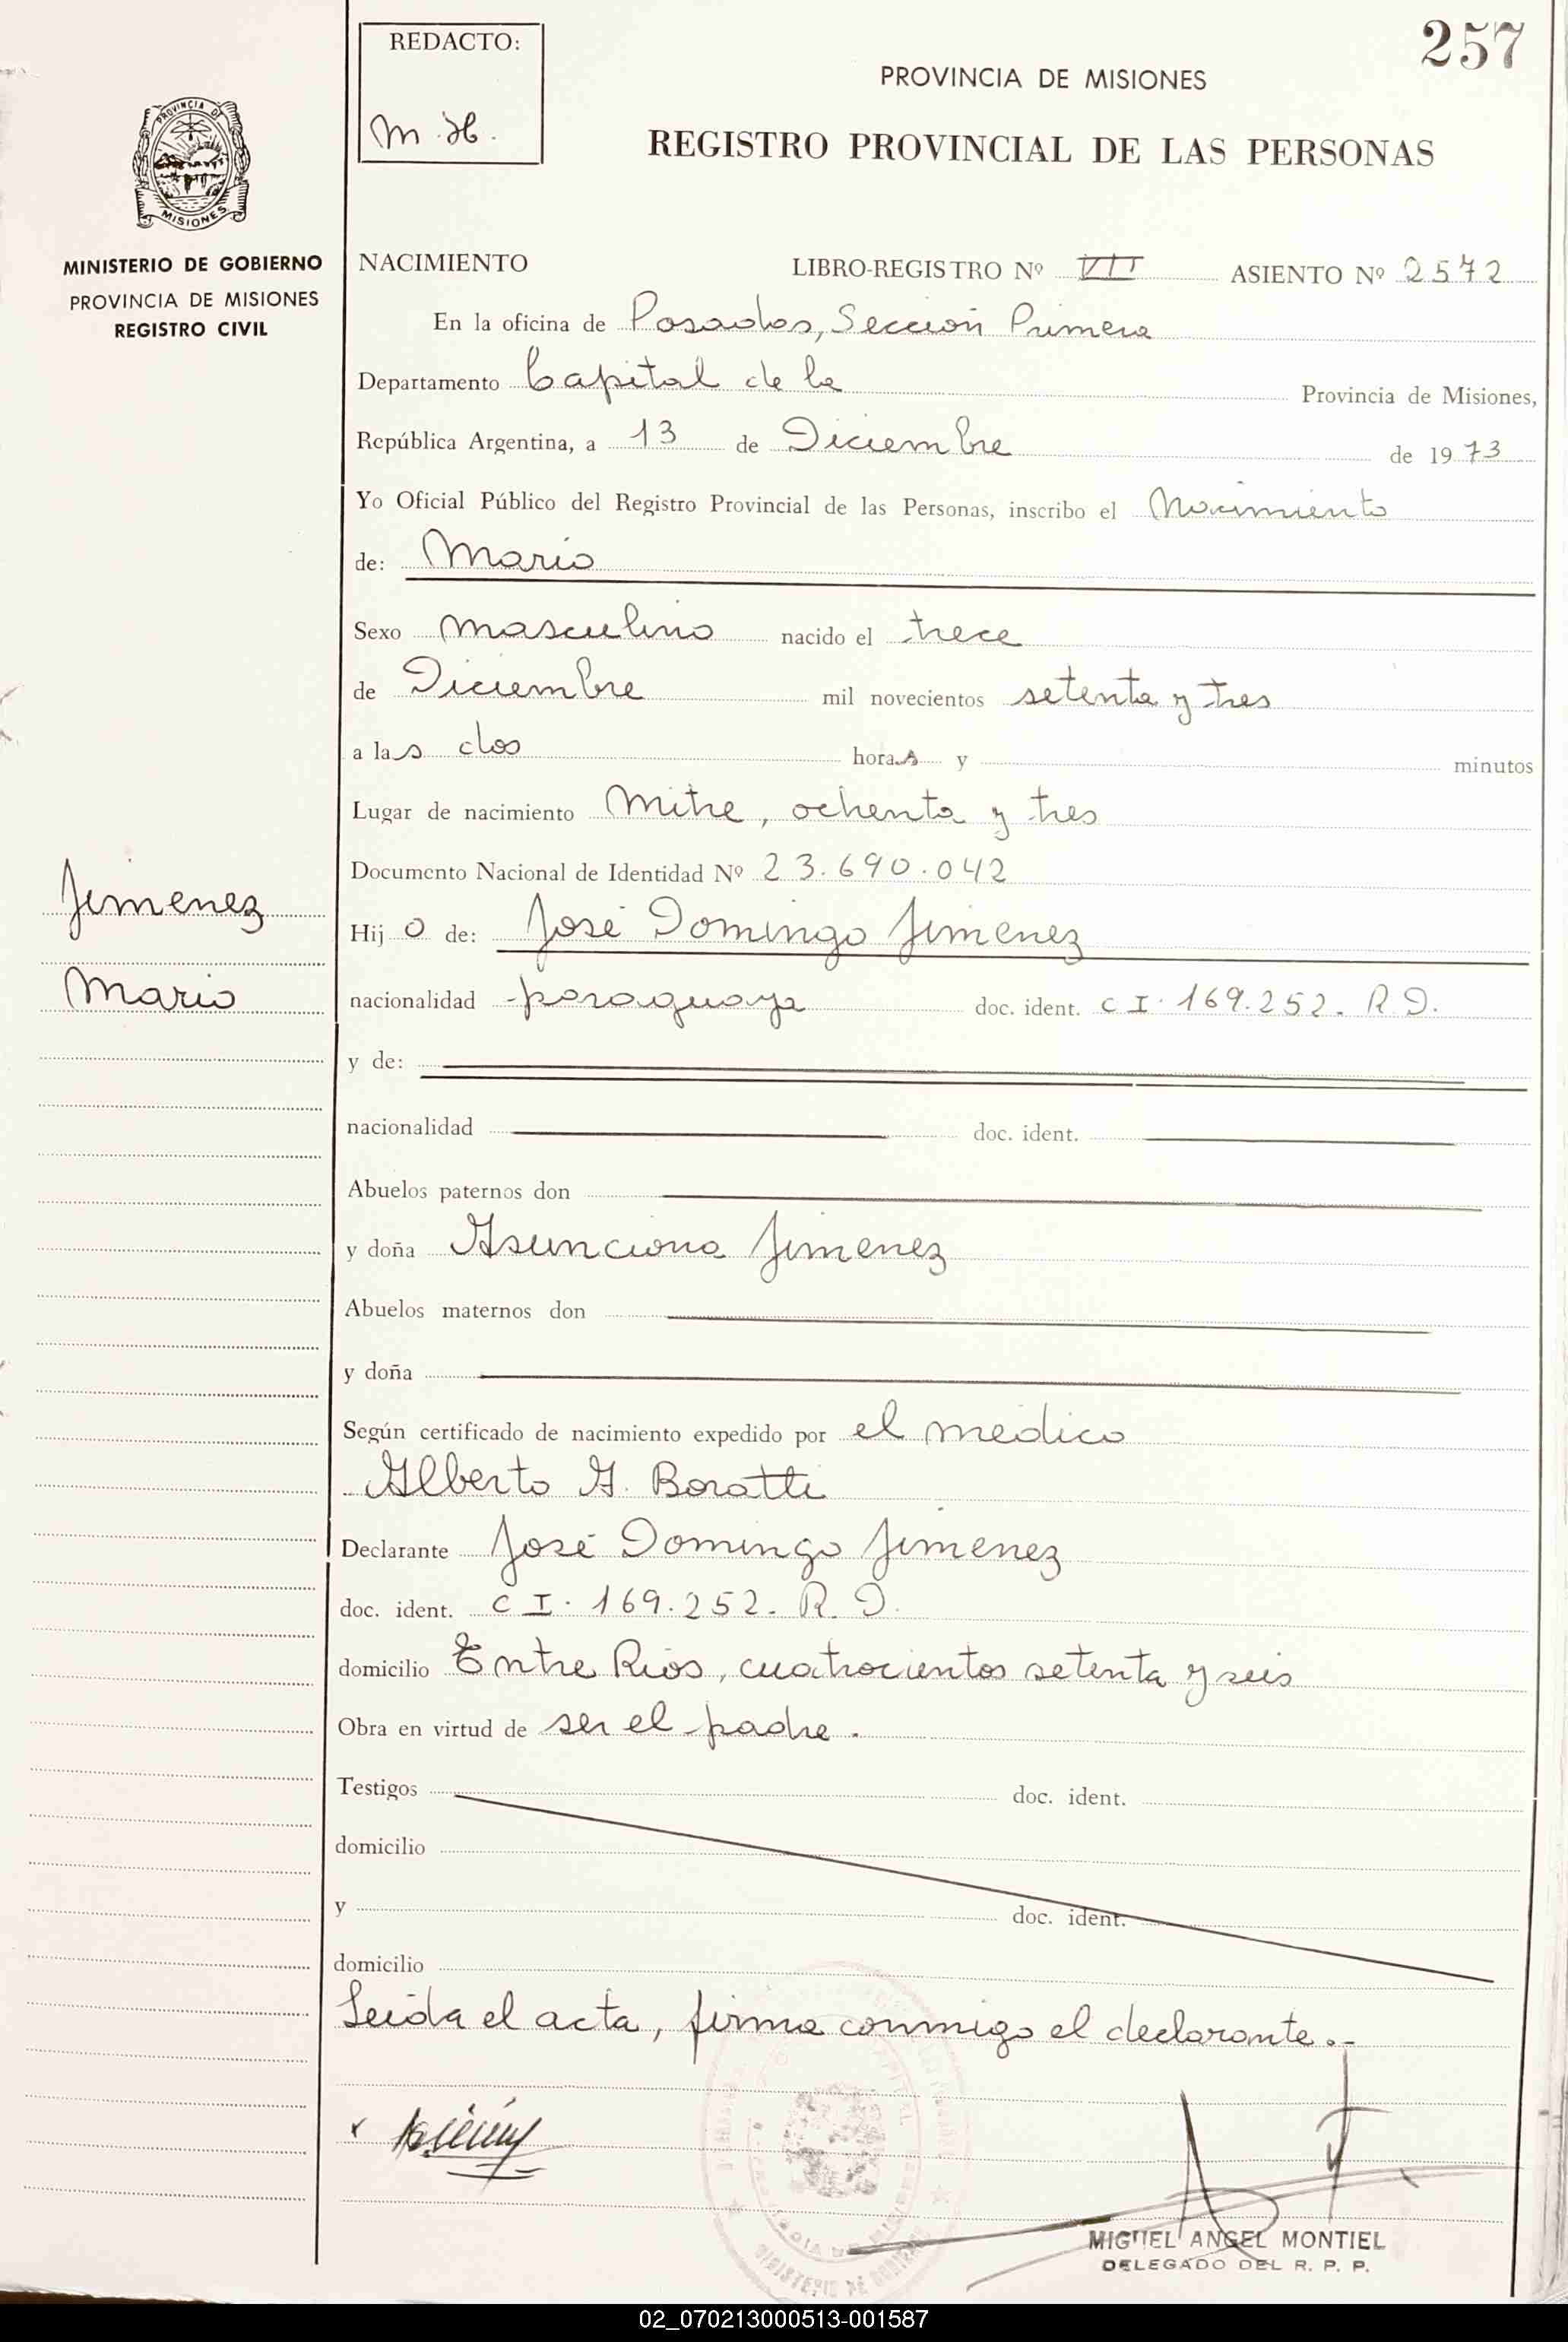 257
REDACTO:
M.H.
PROVINCIA DE MISIONES
REGISTRO PROVINCIAL DE LAS PERSONAS
PROVINCIA DE
MISIONES
MINISTERIO DE GOBIERNO
PROVINCIA DE MISIONES
REGISTRO CIVIL
NACIMIENTO LIBRO-REGISTRO Nº VII ASIENTO Nº 2572
En la oficina de Posadas, Sección Primera
Departamento Capital de la Provincia de Misiones,
República Argentina, a 13 de Diciembre de 1973
Yo Oficial Público del Registro Provincial de las Personas, inscribo el Nacimiento
de: Mario
Sexo masculino nacido el trece
de Diciembre mil novecientos setenta y tres
a las dos horas y minutos
Lugar de nacimiento Mitre, ochenta y tres
Documento Nacional de Identidad Nº 23.690.042
Jimenez
Hijo de: José Domingo Jimenez
Mario
nacionalidad paraguaya doc. ident. C I. 169.252. R.D.
y de:
nacionalidad doc. ident.
Abuelos paternos don
y doña Asunciona Jimenez
Abuelos maternos don
y doña
Según certificado de nacimiento expedido por el médico
Alberto A. Boratti
Declarante José Domingo Jimenez
doc. ident. C I. 169.252. R.D.
domicilio Entre Rios, cuatrocientos setenta y seis
Obra en virtud de ser el padre.
Testigos doc. ident.
domicilio
y doc. ident.
domicilio
Leida el acta, firma conmigo el declarante.-
MIGUEL ANGEL MONTIEL
DELEGADO DEL R. P. P.
02_070213000513-001587